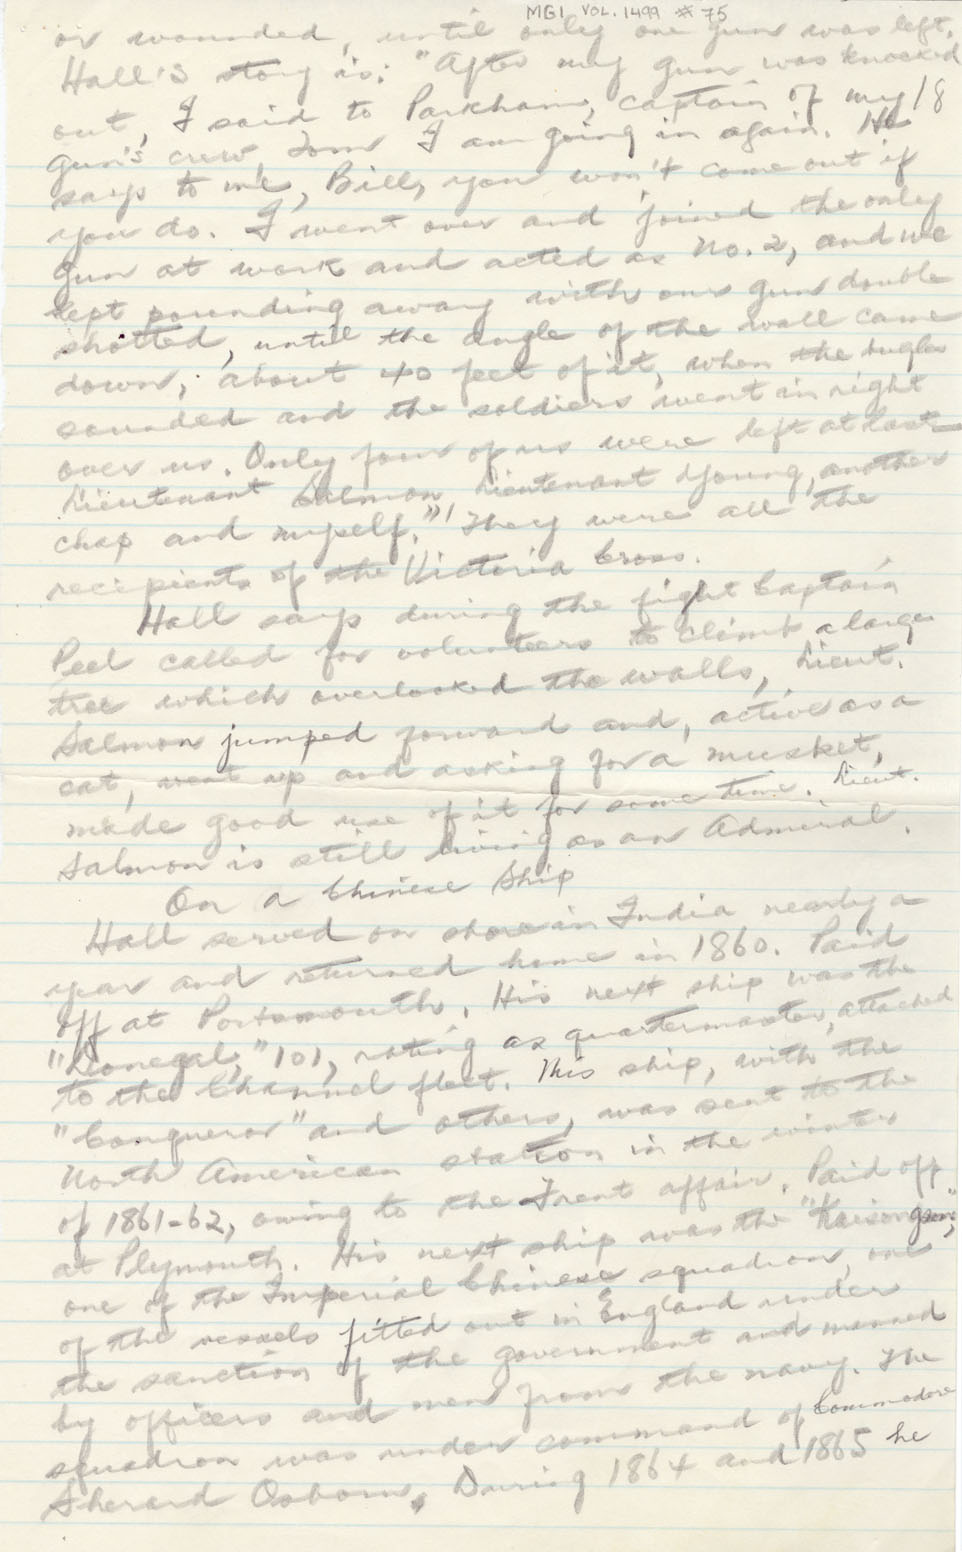 MG1 VOL. 1499 #75
or wounded, until only one gun was left.
Hall's story is: "After my gun was knocked
out, I said to Parkham, captain of my 18
gun's crew, Tom I am going in again. He
says to me, Bill, you won't come out if
you do. I went over and joined the only
gun at work and acted as No. 2, and we
kept pounding away with our gun double
shotted, until the angle of the wall came
down, about 40 feet of it, when the bugles
sounded and the soldiers went in right
over us. Only four of us were left at last
Lieutenant Salmon, Lieutenant Young, another
chap and myself."' They were all the
recipients of the Victoria Cross.
Hall says during the fight Captain
Peel called for volunteers to climb a large
tree which overlooked the walls, Lieut.
Salmon jumped forward and, active as a
cat, went up and asking for a musket,
made good use of it for some time. Lieut.
Salmon is still living as an Admiral.
On a Chinese Ship
Hall served on shore in India nearly a
year and returned home in 1860. Paid
off at Portsmouth. His next ship was the
"Donegal," 101, rating as quartermaster, attached
to the Channel fleet. This ship, with the
"Conqueror" and others, was sent to the
North American station in the winter
of 1861-62, owing to the Trent affair. Paid off
at Plymouth. His next ship was the
one of the Imperial Chinese squadron, one
of the vessels fitted out in England under
the sanction of the government and manned
by officers and men from the navy. The
squadron was under command of Commodore
Sherard Osborn. During 1864 and 1865 he